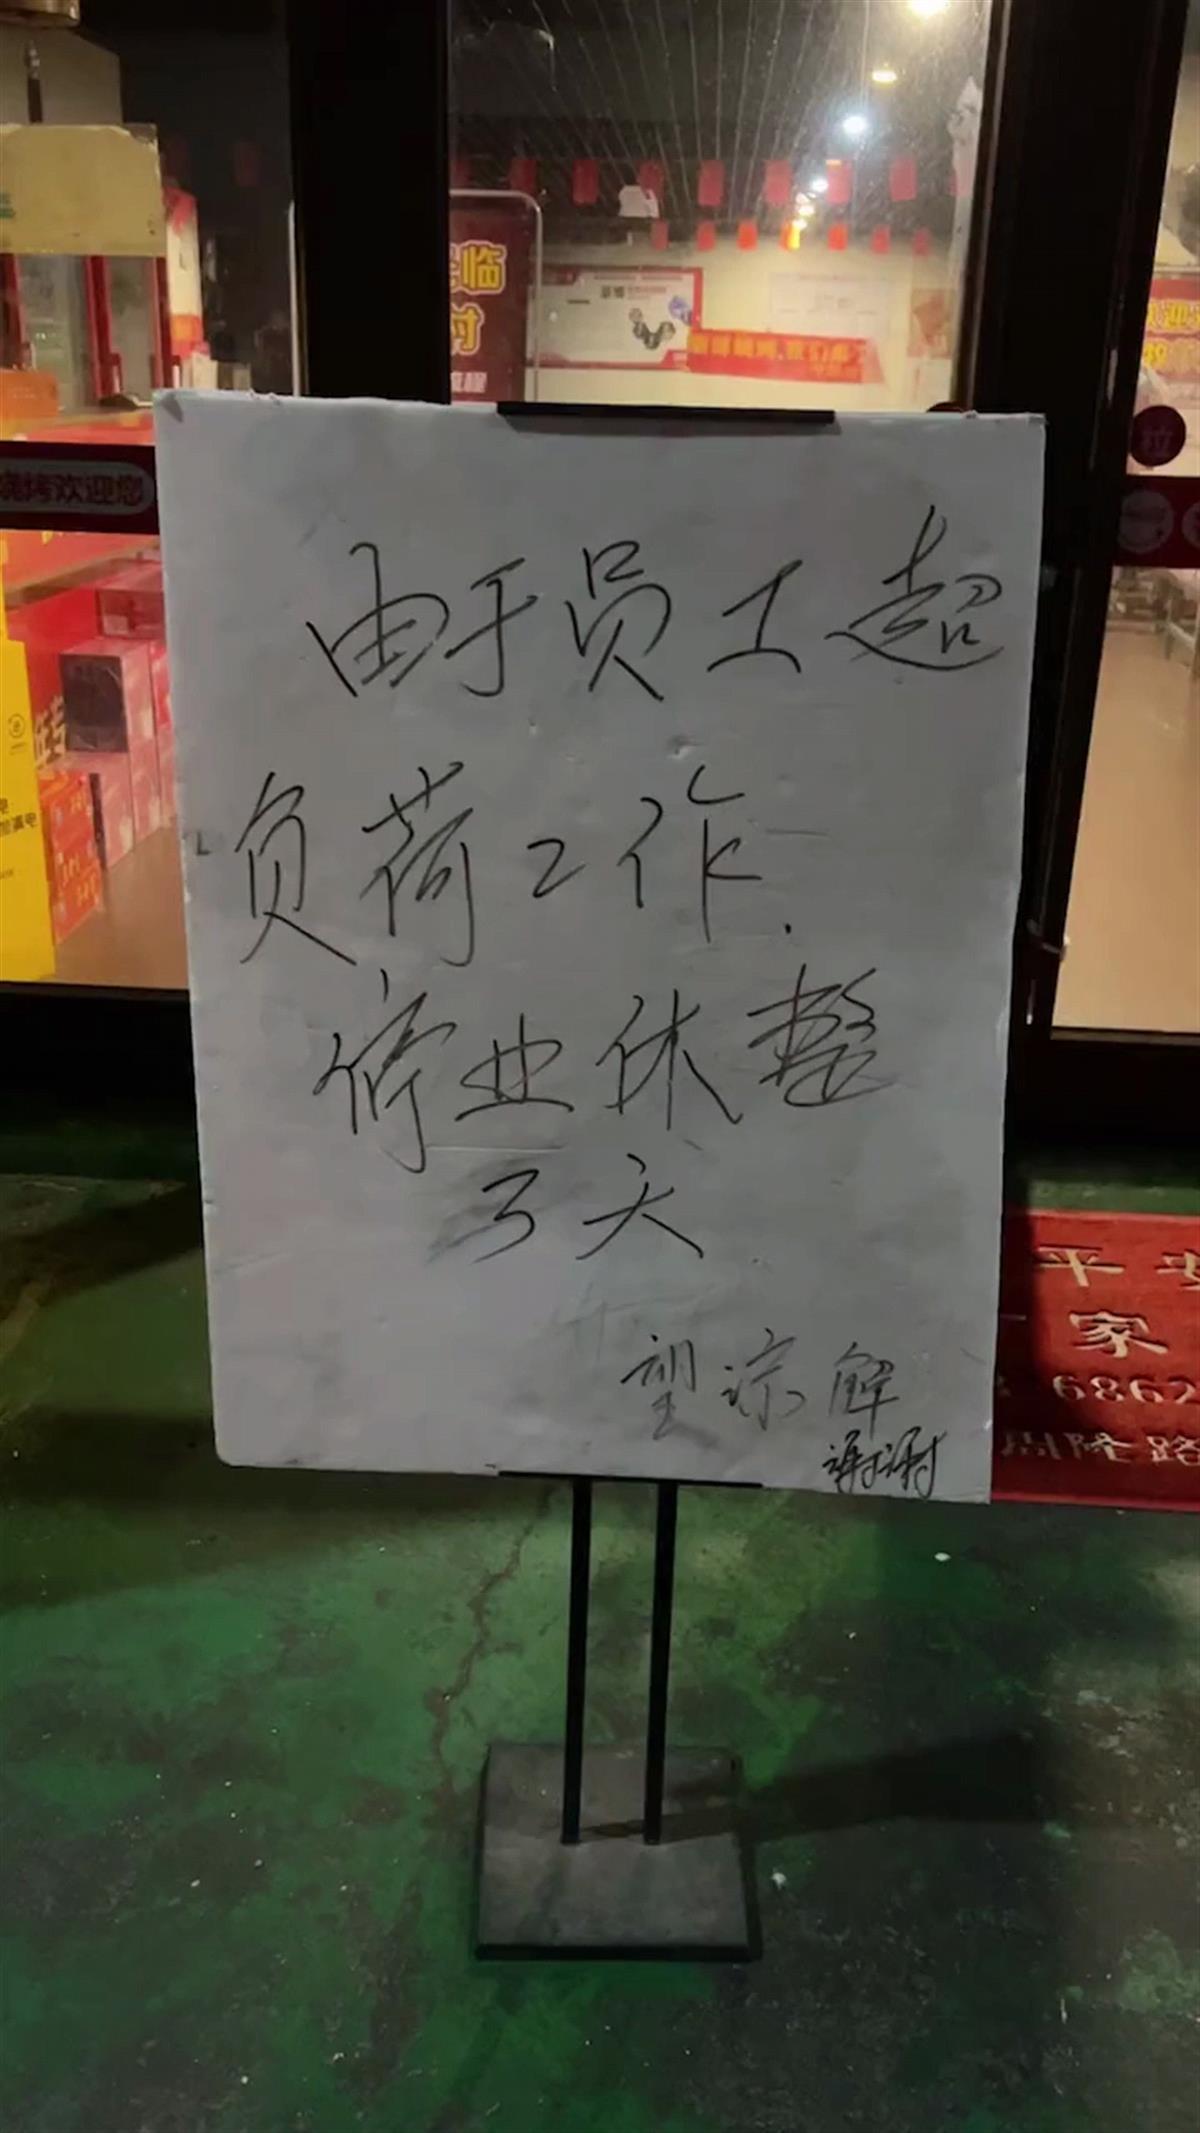 临
村
欢迎
烧烤欢迎您
拉
由于员工超
负荷工作.
停业休整
3天
望谅解
谢谢
平安
家
6862
周隆路